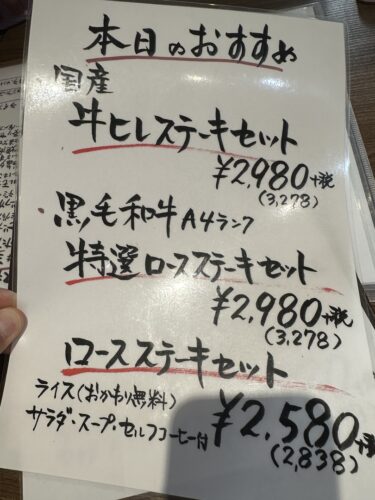 本日のおすすめ
国産
牛ヒレステーキセット
¥2,980+税
(3,278)
黒毛和牛A4ランク
特選ロースステーキセット
¥2,980+税
(3,278)
ロースステーキセット
ライス(おかわり無料)
サラダ・スープ・セルフコーヒー付
¥2,580+税
(2,838)